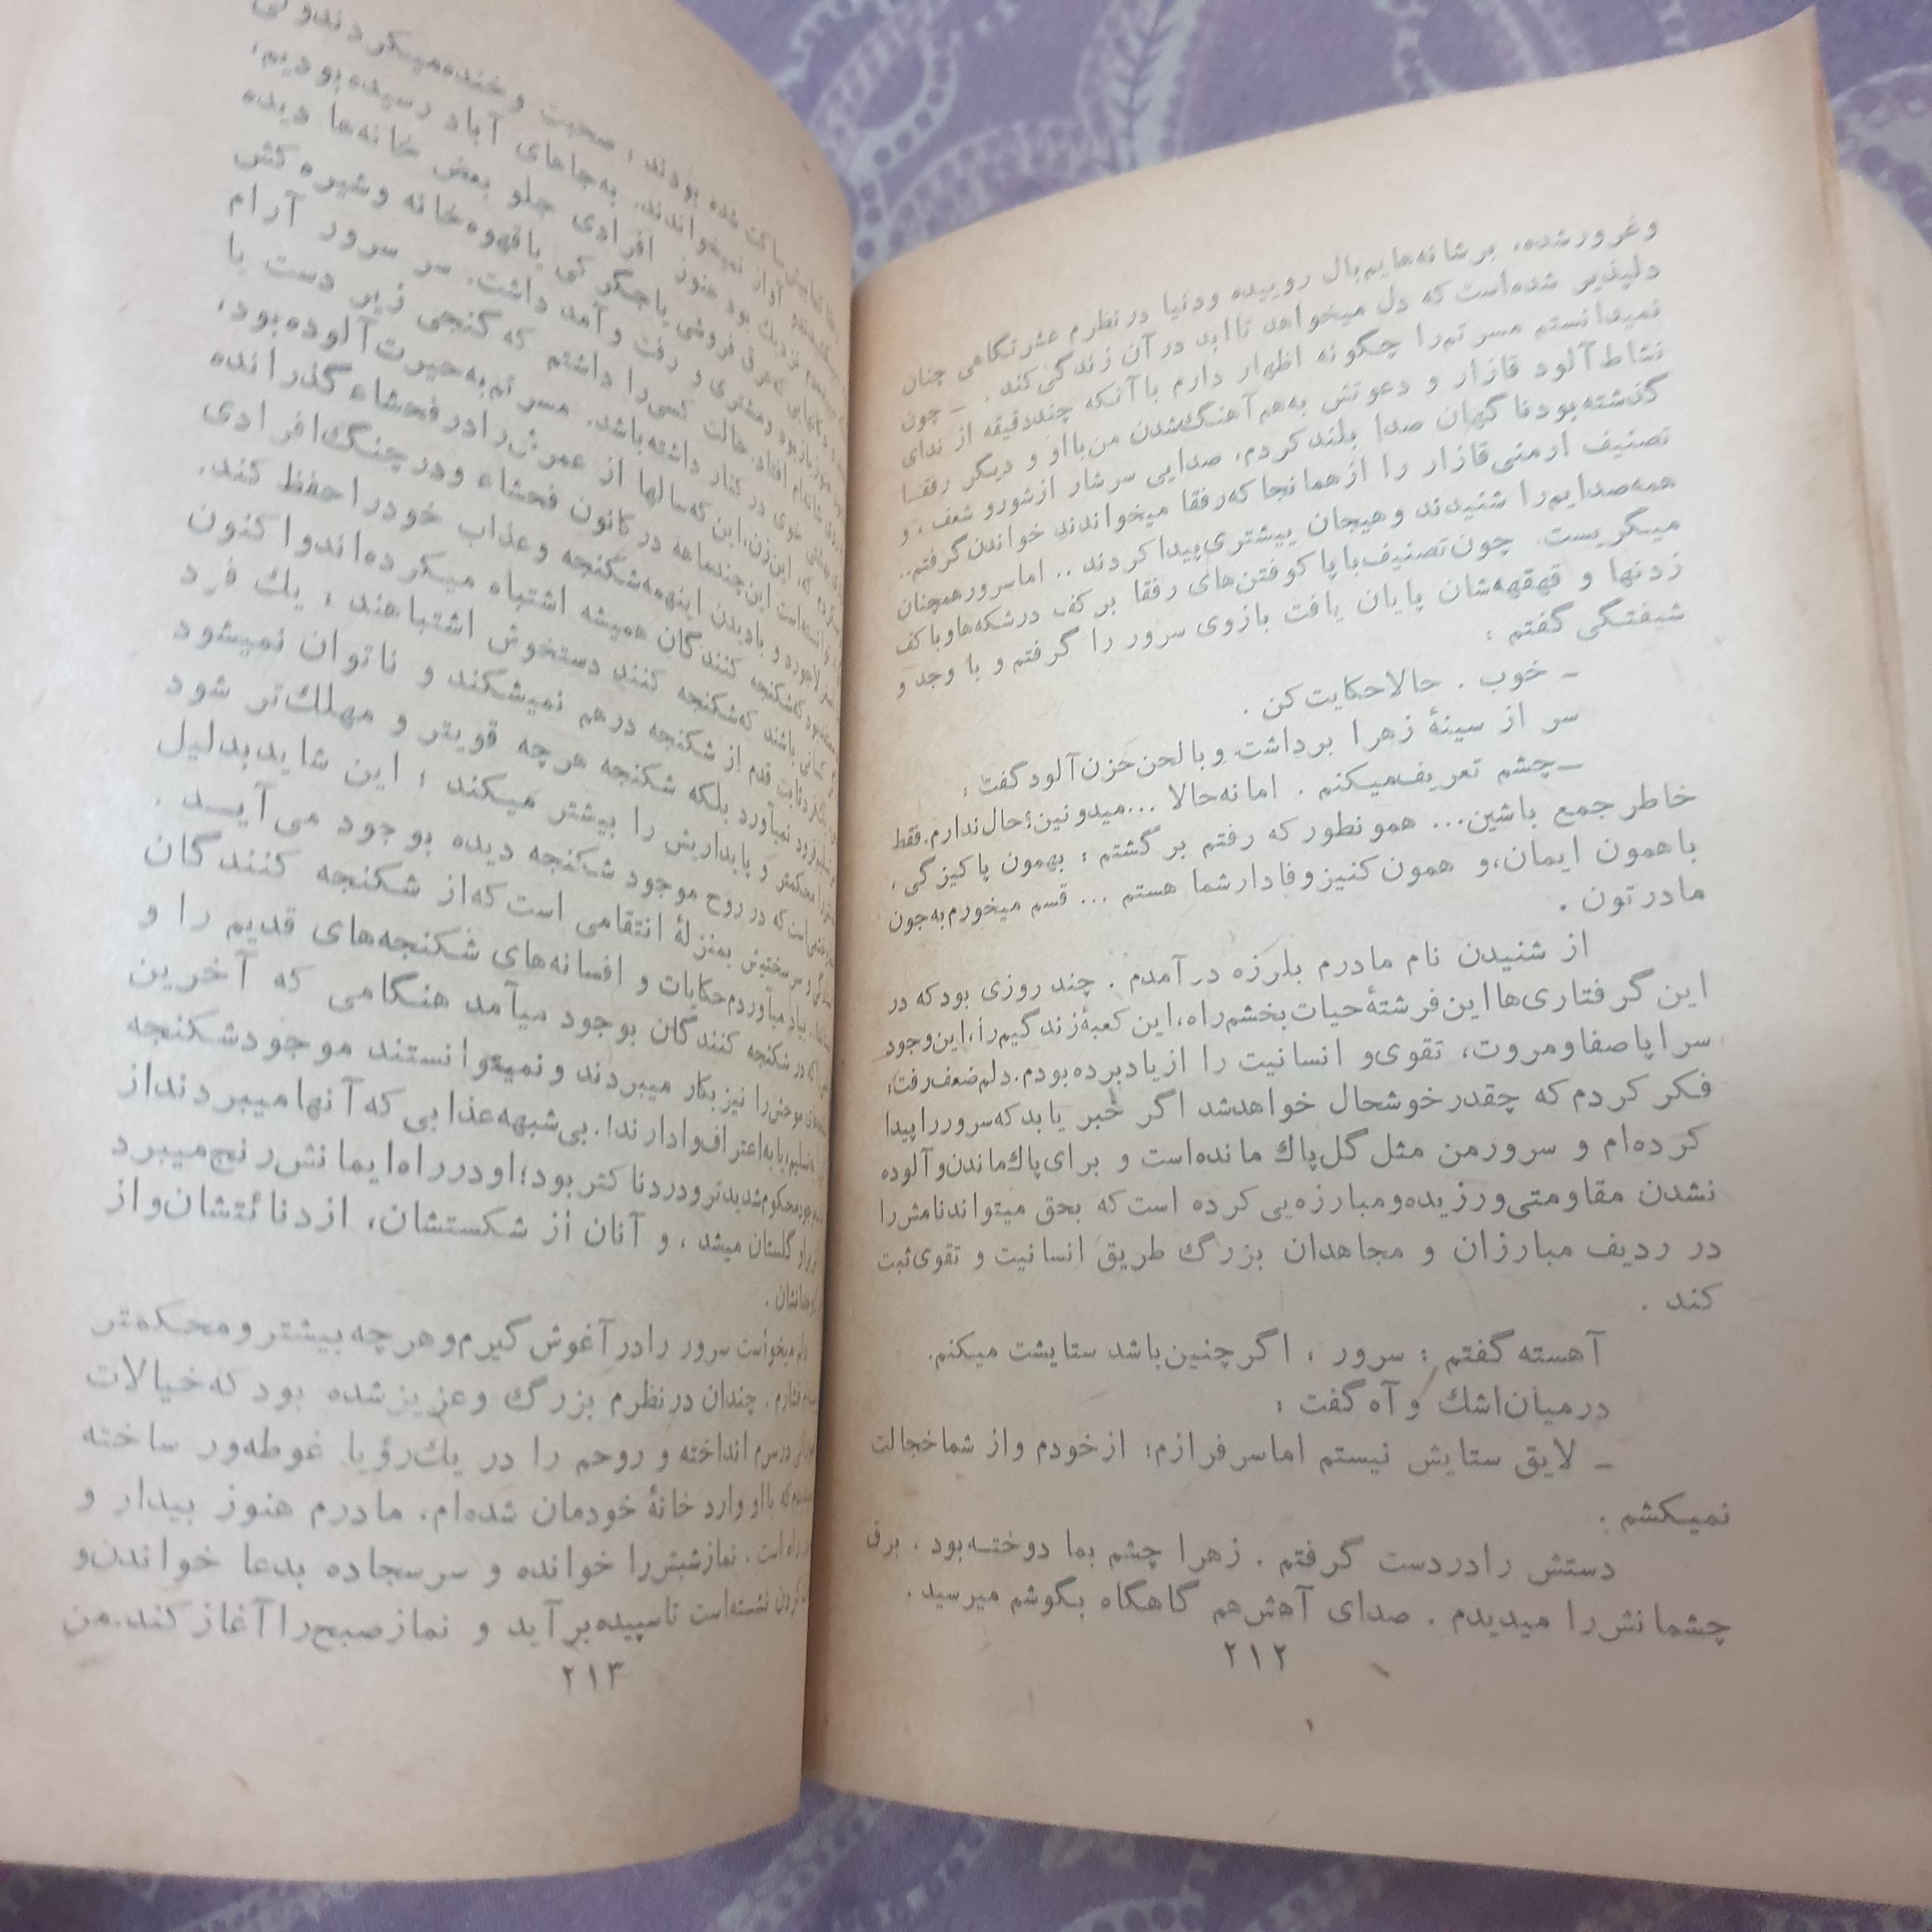 وغرورشده، برشانه‌هایم‌بال روییده ودنیا درنظرم عشرتگاهی چنان
دلپذیر شده‌است که دل میخواهد تا ابد در آن زندگی کند . ـ چون
نمیدانستم مسرتم‌را چگونه اظهار دارم باآنکه چنددقیقه از ندای
نشاط آلود قازار و دعوتش به‌هم‌آهنگ‌شدن من‌بااو و دیگر رفقا
گذشته‌بودناگهان صدا بلندکردم، صدایی سرشار ازشورو شعف، و
تصنیف ارمنی‌قازار را ازهمانجاکه‌رفقا میخواندند خواندن‌گرفتم..
همه‌صدایم‌را شنیدند وهیجان بیشتری‌پیداکردند .. اماسرورهمچنان
میگریست. چون‌تصنیف‌باپاکوفتن‌های رفقا برکف درشکه‌هاوباکف
زدنها و قهقهه‌شان پایان یافت بازوی سرور را گرفتم و با وجد و
شیفتگی گفتم :
ـ خوب . حالاحکایت‌کن .
سر از سینهٔ زهرا برداشت وبالحن‌حزن‌آلودگفت :
ـ چشم تعریف‌میکنم . امانه‌حالا ...میدونین؛حال‌ندارم.فقط
خاطرجمع باشین... همونطور که رفتم برگشتم ؛ بهمون پاکیزگی ،
باهمون ایمان،و همون‌کنیزوفادارشما هستم ... قسم میخورم‌به‌جون
مادرتون .
از شنیدن نام مادرم بلرزه درآمدم . چند روزی بودکه در
این گرفتاری‌هااین‌فرشتهٔ‌حیات‌بخشم‌راه،این‌کعبهٔ‌زندگیم‌را،این‌وجود
سراپاصفاومروت، تقوی‌و انسانیت را ازیادبرده‌بودم.دلم‌ضعف‌رفت؛
فکر کردم که چقدرخوشحال خواهدشد اگر خبر یابدکه‌سرورراپیدا
کرده‌ام و سرورمن مثل گل‌پاك مانده‌است و برای‌پاك‌ماندن‌وآلوده
نشدن مقاومتی‌ورزیده‌ومبارزه‌یی‌کرده است‌که بحق میتواندنامش‌را
در ردیف مبارزان و مجاهدان بزرگ طریق انسانیت و تقوی‌ثبت
کند .
آهسته گفتم : سرور ، اگرچنین‌باشد ستایشت میکنم.
درمیان‌اشك و آه گفت :
ـ لایق ستایش نیستم اماسرفرازم؛ ازخودم واز شماخجالت
نمیکشم .
دستش رادردست گرفتم . زهرا چشم بما دوختـه‌بود . برق
چشمانش‌را میدیدم . صدای آهش‌هم گاهگاه بگوشم میرسید .
۲۱۲
ساکت شده بودند ؛ صحبت وخنده‌میکردندولی
آواز نمیخواندند. به‌جاهای آباد رسیده‌بودیم،
نزدیك بود هنوز افرادی جلو بعض خانه‌ها دیده
عرق فروشی یاجگرکی یاقهوه‌خانه وشیره‌کش
بازبود ومشتری و رفت وآمد داشت. سر سرور آرام
افتاد. حالت کسی‌را داشتم که‌گنجی زیر دست با
خوی درکنار داشته‌باشد. مسرتم‌به‌حیرت‌آلوده‌بود،
این‌زن،این‌که‌سالها از عمرش‌رادرفحشاء گذرانده
است این‌چندماهه درکانون فحشاء ودرچنگ‌افرادی
و بادیدن اینهمه‌شکنجه وعذاب خودراحفظ کند.
شکنجه کنندگان همیشه اشتباه میکرده‌اندواکنون
باشند که‌شکنجه کنند دستخوش اشتباهند ؛ یك فرد
ثابت قدم از شکنجه درهم نمیشکند و ناتوان نمیشود
نمیآورد بلکه شکنجه هرچه قویتر و مهلك‌تر شود
محکمتر و پایداریش را بیشتر میکند ؛ این شایدبدلیل
است‌که در روح موجود شکنجه دیده بوجود می‌آیـد .
سرسختیش بمنزلهٔ انتقامی است‌که‌از شکنجه کنندگان
بیاد میآوردم‌حکایات و افسانه‌های شکنجه‌های قدیم را و
که در شکنجه کنندگان بوجود میآمد هنگامی که آخرین
موحش‌را نیز بکار میبردند ونمیتوانستند موجودشکنجه
تسلیم،یا به‌اعتراف‌وادارند!.بی‌شبهه‌عذابی‌که آنهامیبردنداز
محکوم‌شدیدترودردناکتر بود؛اودرراه‌ایمانش‌رنج‌میبرد
گلستان میشد ، و آنان از شکستشان، ازدنائتشان‌واز
دلم میخواست سرور رادرآغوش گیرم‌وهرچه‌بیشترومحکمتر
فشارم . چندان درنظرم بزرگ وعزیزشده بودکه‌خیالات
درسرم انداخته و روحم را در یك‌رؤیا غوطه‌ور ساخته
که بااو وارد خانهٔ خودمان شده‌ام، مادرم هنوز بیدار و
است . نمازشبش‌را خوانده و سرسجاده بدعا خواندن‌و
نشسته‌است تاسپیده‌برآید و نمازصبح‌را آغازکند.من
۲۱۳